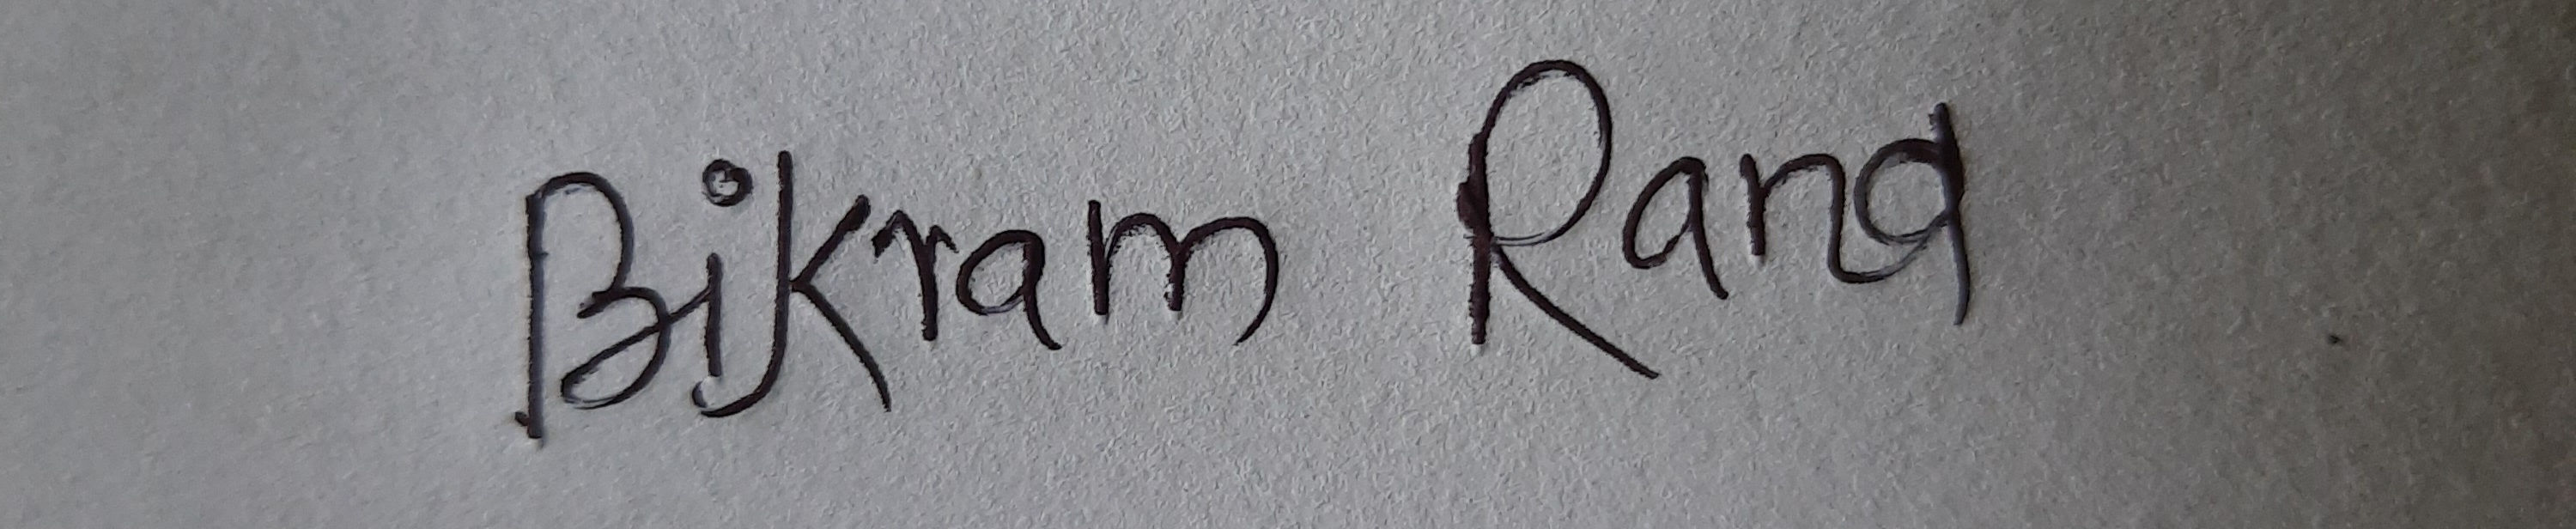 Bikram Rana